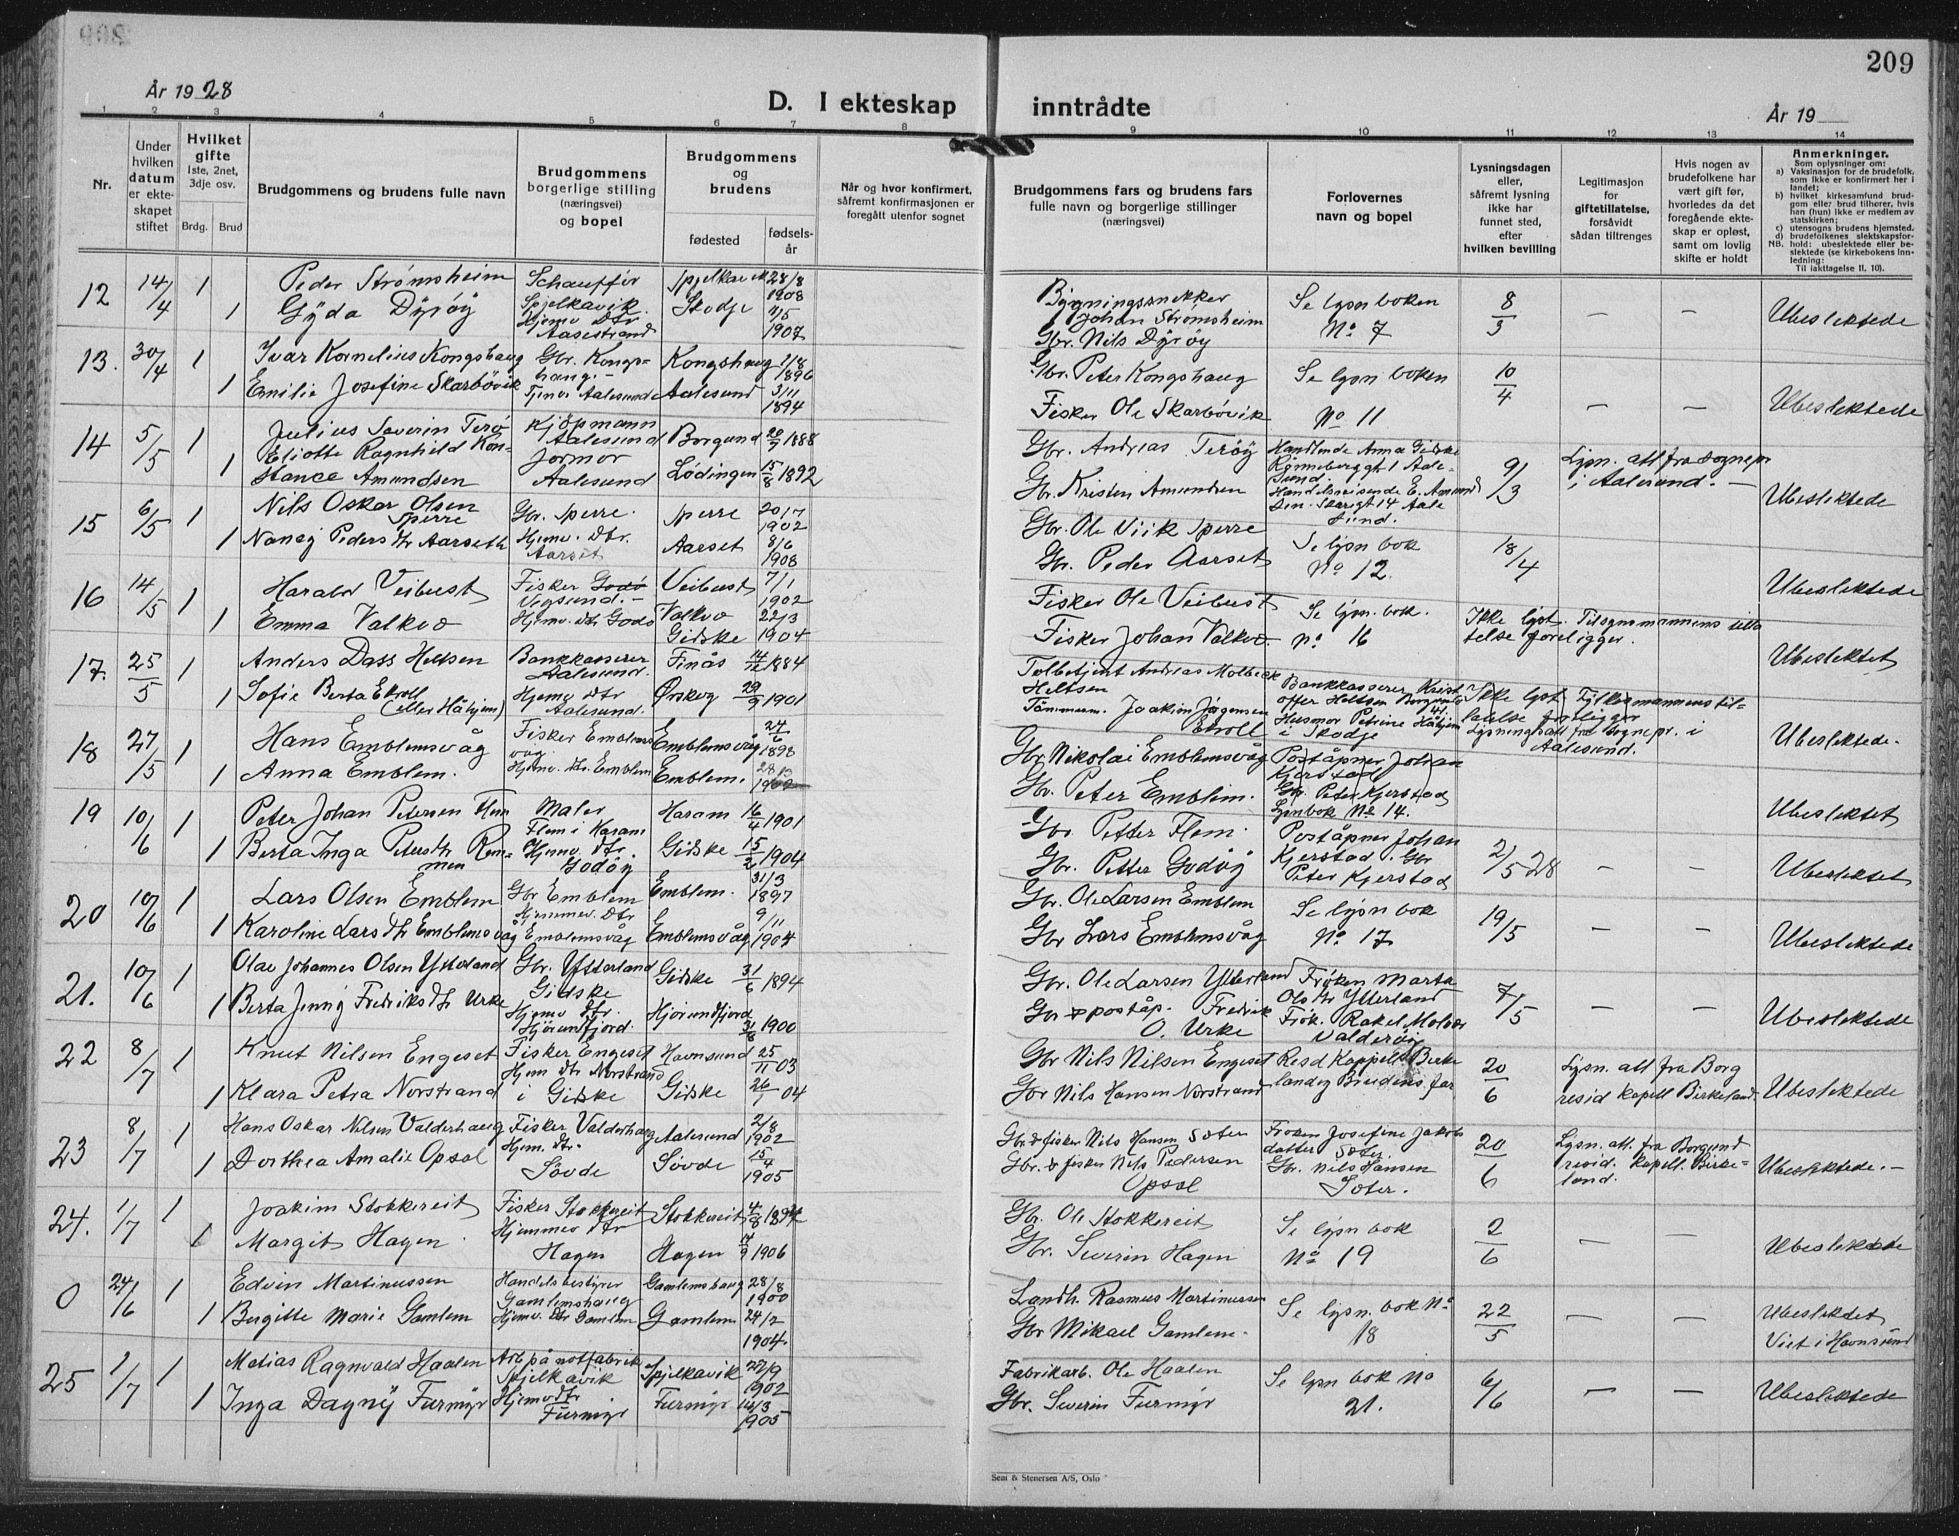 209
År 1928
D. I ekteskap inntrådte
År 19
1 2 3 4 5 6 7 8 9 10 11 12 13 14
Nr.
Under hvilken datum er ekteskapet stiftet
Hvilket gifte 1ste, 2net, 3dje osv.
Brdg. Brud
Brudgommens og brudens fulle navn
Brudgommens borgerlige stilling (næringsvei) og bopel
Brudgommens og brudens
fødested
fødselsår
Når og hvor konfirmert, såfremt konfirmasjonen er foregått utenfor sognet
Brudgommens fars og brudens fars fulle navn og borgerlige stillinger (næringsvei)
Forlovernes navn og bopel
Lysningsdagen eller, såfremt lysning ikke har funnet sted, efter hvilken bevilling
Legitimasjon for giftetillatelse, forsåvidt sådan tiltrenges
Hvis nogen av brudefolkene har vært gift før, hvorledes da det foregående ekteskap er opløst, samt om lovlig skifte er holdt
Anmerkninger.
Som oplysninger om:
a) Vaksinasjon for de brudefolk, som ikke er konfirmert her i landet;
b) hvilket kirkesamfund brudgom eller brud tilhører, hvis han (hun) ikke er medlem av statskirken;
c) utensogns brudens hjemsted.
d) brudefolkenes slektskapsforhold: ubeslektede eller beslektede (se kirkebokens innledning:
NB.
Til iakttagelse II, 10).
12 14/4 1 Peder Strømsheim Schauffør Spjelkavik Spjelkavik 28/8 1908 Bygningssnekker Johan Strømsheim Se lysn boken No 7 8/3 — — Ubeslektede
1 Gyda Dyrøy Hjemv dtr. Aasestrand Skodje 1907 Gbr. Nils Dyrøy
13. 30/4 1 Ivar Kornelius Kongshaug Gbr. Kongshaug. Kongshaug 1896 Gbr. Peter Kongshaug Se lysn boken No 11 10/4 — — Ubeslektede
1 Emilie Josefine Skarbøvik Tjenv. Aalesund Aalesund 3/11 1894 Fisker Ole Skarbøvik
14 5/5 1 Julius Severin Terøy Kjøpmann Aalesund Borgund 1888 Gbr. Andreas Terøy Handlende Anna Giske Rønneberggt 1 Aalesund. 9/3 Lysn. att fra sognepr i Aalesund. — Ubeslektede
1 Eliotte Ragnhild Konstance Amundsen Jormor Aalesund Lødingen 15/8 1892 Gbr. Kristen Amundsen Handelsreisende E. Amundsen. Skarigt 14 Aalesund.
15 6/5 1 Nils Oskar Olsen Sperre Gbr. Sperre. Sperre 20/7 1902 Gbr. Ole Viik Sperre Se lysn bok No 12. 18/4 Ubeslektede
1 Nancy Peders dtr Aarseth Hjemv. dtr. Aarset Aarset 8/6 1908 Gbr. Peder Aarset
16 14/5 1 Harald Veibust Fisker Godø Vigsund. Veibust 7/1 1902 Fisker Ole Veibust Se lysn. bok. No 16 Ikke lyst. Tilsognsmannens tillatelse foreligger. Ubeslektet
1 Emma Valkvo Hjemv. dtr Godø Valkvo Gidske 22/3 1904 Fisker Johan Valkvo
17. 25/5 1 Anders Dass Heltsen Bankkasserer Aalesund. Finås 1884 Tolbetjent Andreas Molbeck Heltsen Bankkasserer Kristoffer Heltsen Ikke lyst. Fylkesmannens tillatelse foreligger
1 Sofie Berta Ekroll (eller Håhjem) Hjemv dtr Aalesund. Ørskog 29/9 1901 Tømmerm. Joakim Jørgensen Ekroll Husmor Petrine Håhjem i Skodje Lysningsatt fra Sognepr. i Aalesund.
18 27/5 1 Hans Emblemsvåg Fisker Emblemsvåg Emblemsvåg 24/6 1898 Gbr Nikolai Emblemsvåg Poståpner Johan Kjerstad Ubeslektede.
1 Anna Emblem. Hjemv. dtr Emblem Emblem. Gbr. Peter Emblem. Gbr. Peter Kjerstad Lysnbok No 14. Ubeslektet
19 10/6 1 Peter Johan Petersen Flem Maler Flem i Haram Haram 16/4 1901 Gbr Petter Flem. Poståpner Johan Kjerstad. Gbr Peter Kjerstad 2/5 28 — — Ubeslektet
1 Berta Inga Peters dtr Remmen Hjemv. dtr. Godøy Gidske 15/2 1904 Gbr. Petter Godøy
20 10/6 1 Lars Olsen Emblem Gbr Emblem Emblem. 31/3 1897 Gbr. Ole Larsen Emblem Se lysn bok No. 17 19/5 — — Ubeslektede
1 Karoline Lars dtr Emblemsvåg Hjemmev. dtr Emblemsvåg Emblemsvåg 9/11 1904 Gbr Lars Emblemsvåg
21. 10/6 1 Olav Johannes Olsen Ytterland Gbr. Ytterland Gidske Gidske 31/6 1894 Gbr. Ole Larsen Ytterland Frøken Marta Ols dtr Ytterland 7/5 — — Ubeslektede
1 Berta Jenny Fredriks dtr Urke Hjemv dtr. Hjørundfjord. Hjørundfjord 31/8 1900 Gbr & poståp. Fredrik O. Urke Frøk. Rakel Molvær Valderøy
22 8/7 1 Knut Nilsen Engeset Fisker Engeset Havnsund 25/11 03 Gbr Nils Nilsen Engeset Resd Kappell Birkeland og Brudens far 20/6 Lysn. att fra Borg resid kapell Birkeland. Ubeslektede
1 Klara Petra Norstrand Hjem dtr Norstrand i Giske Gidske 26/1 04 Gbr Nils Hansen Norstrand
23 8/7 1 Hans Oskar Nilsen Valderhaug Fisker Valderhaug Aalesund 2/8 1902 Gbr. & fisker Nils Hansen Sæter Frøken Josefine Jakobsdatter Sæter. 20/6 Lysn. att. fra Borgund resid. kapell. Birkeland. Ubeslektede. —
1 Dorthea Amalie Opsal Hjem. dtr. Søvde Søvde 15/4 1905 Gbr. & fisker Nils Pedersen Opsal Gbr. Nils Hansen Sæter.
24. 1/7 1 Joakim Stokkereit Fisker Stokkereit Stokkereit 4/8 1894 Gbr. Ole Stokkereit Se lysn bok No 19 2/6 — — Ubeslektede
1 Margit Hagen. Hjemmev dtr Hagen Hagen 14/9 1906 Gbr. Severin Hagen
0 24/6 1 Edvin Martinussen Handelsbestyrer Gamlemshaug Gamlemshaug 28/8 1900 Landh. Rasmus Martinussen Se lysn. bok No 18 22/5 — — Ubeslektet
1 Birgitte Marie Gamlem Hjemv. dtr Gamlem Gamlem 24/2 1904. Gbr Mikael Gamlem. Viet i Havnsund
25 1/7 1 Matias Ragnvald Haalen Arb på notfabrik Spjelkavik Spjelkavik 27/9 1902 Fabrikarb. Ole Haalen Se lysn bok No 21. 6/6 — — Ubeslektede
1 Inga Dagny Furmyr Hjemv dtr Furmyr Furmyr 14/3 1905 Gbr. Severin Furmyr
Sem & Stenersen A/S, Oslo